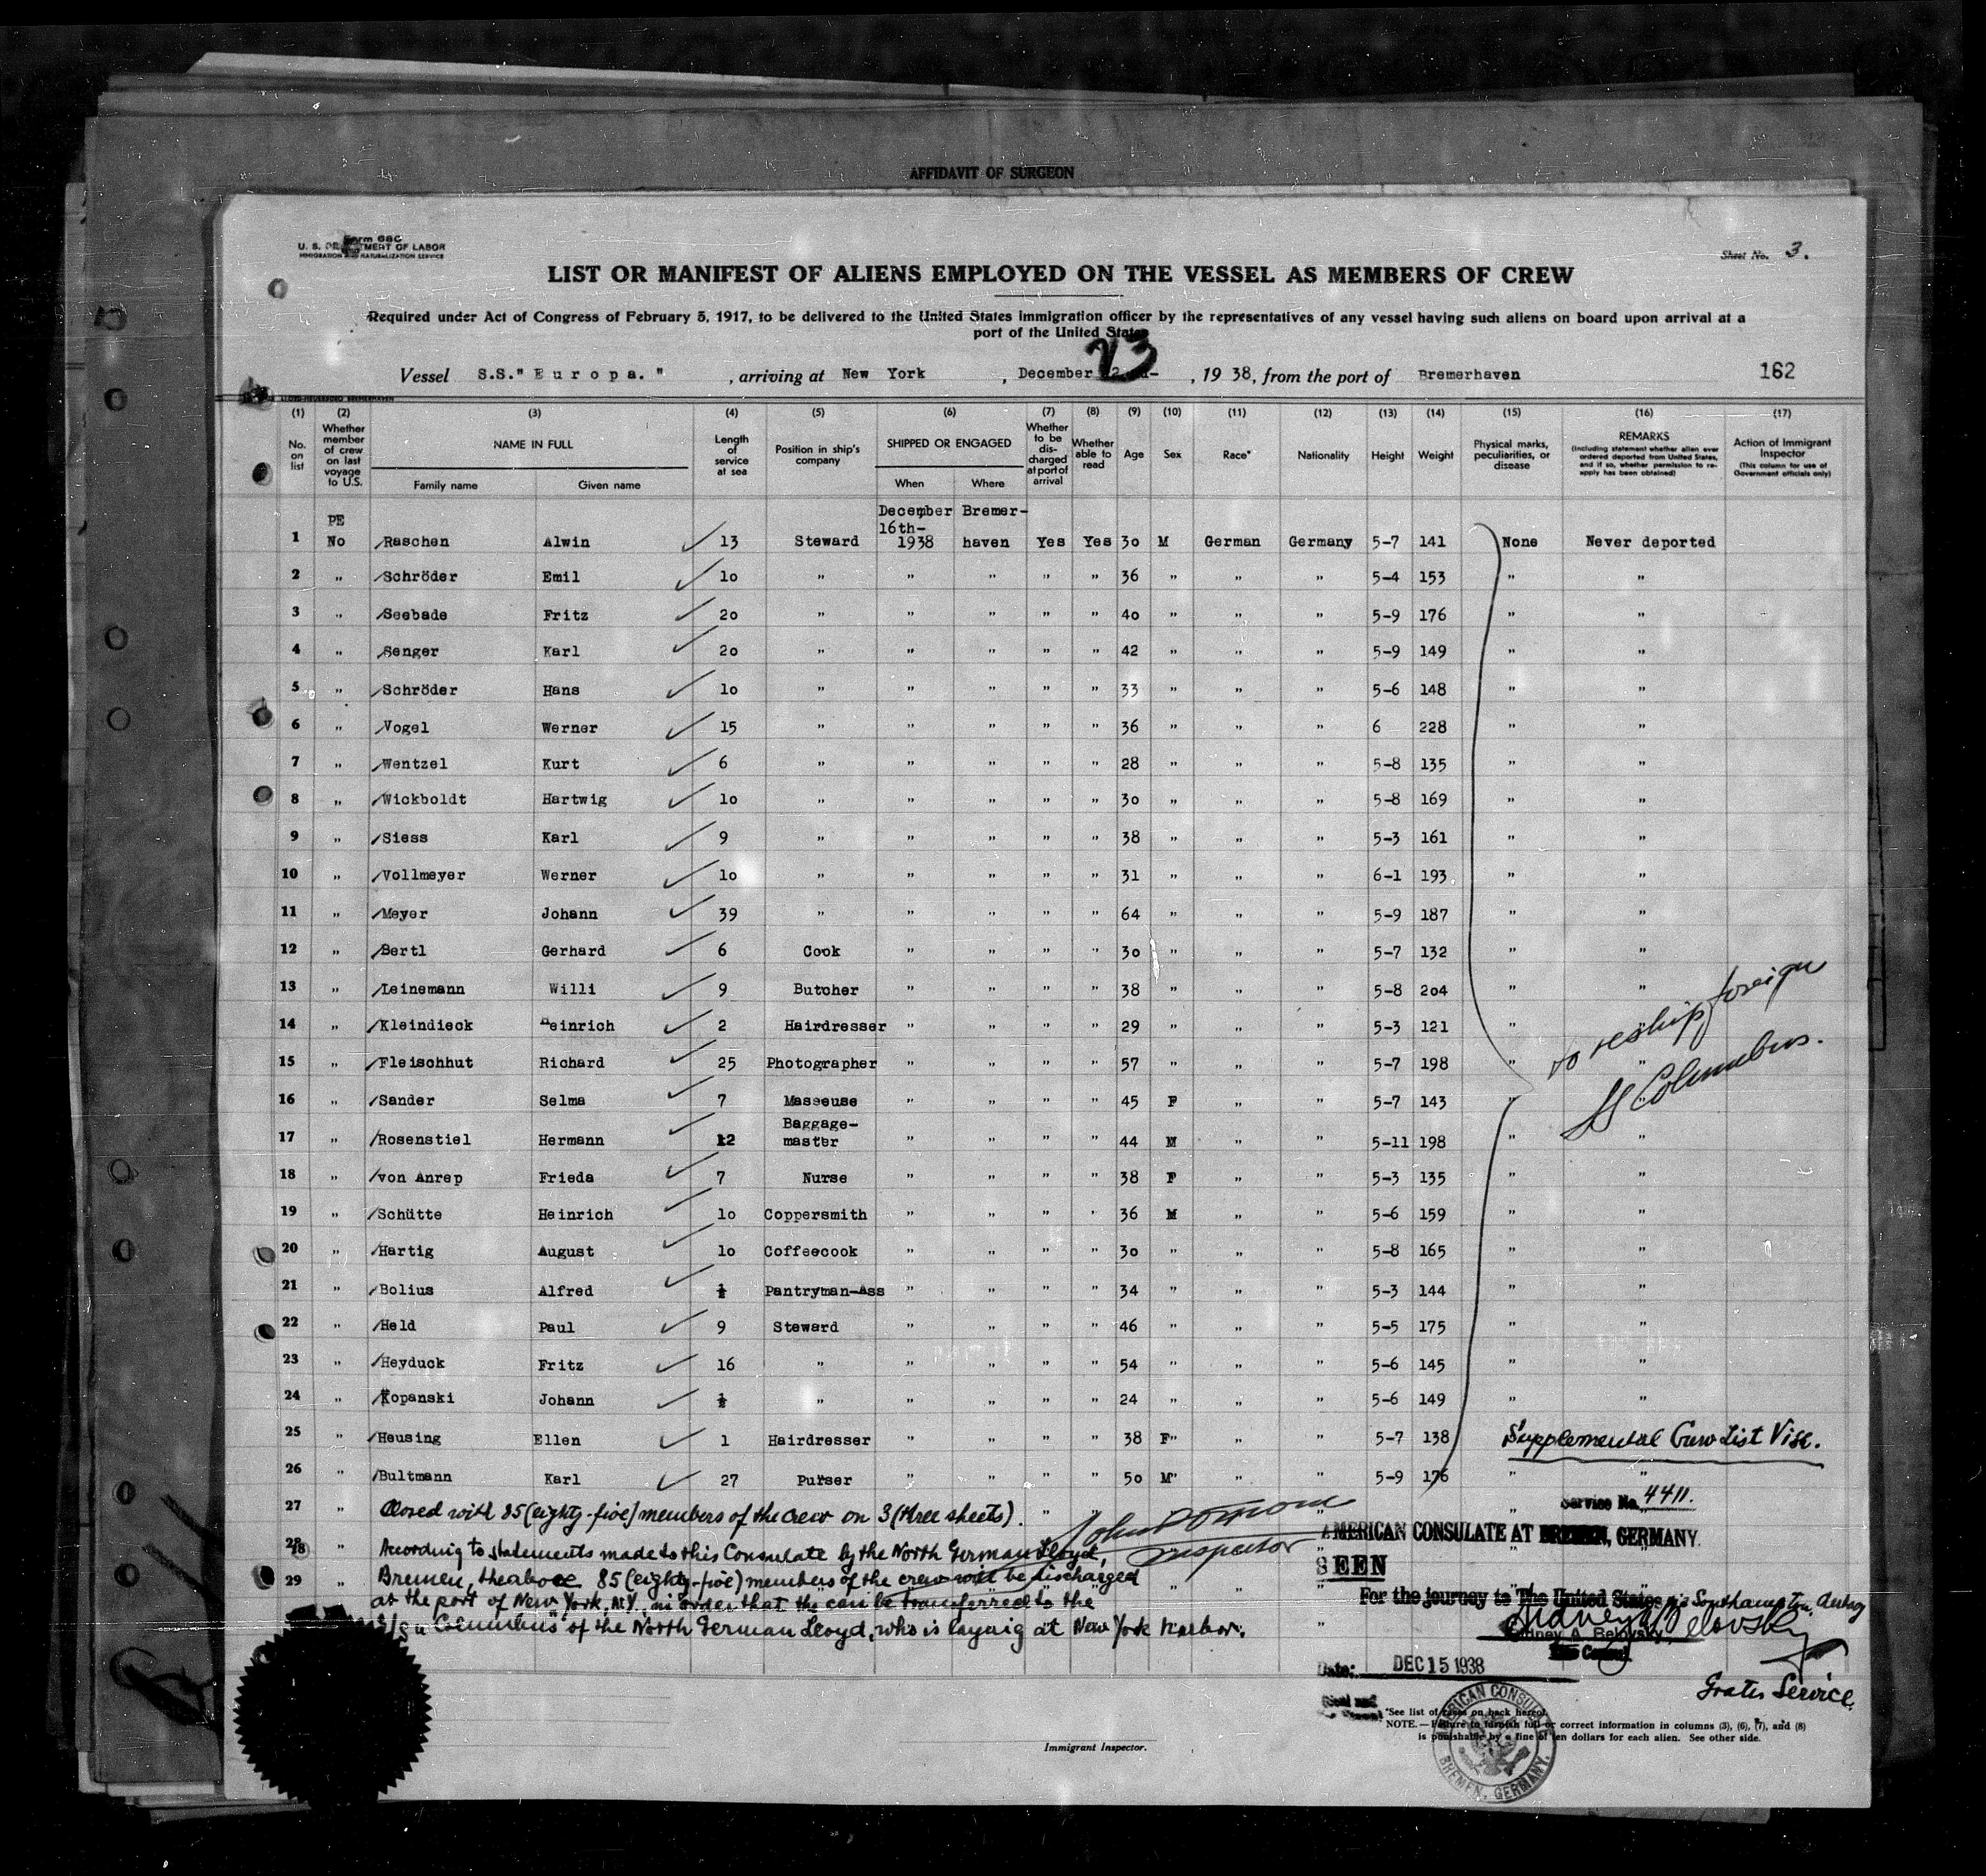 AFFIDAVIT OF SURGEON
Form 680
U. S. DEPARTMENT OF LABOR
IMMIGRATION AND NATURALIZATION SERVICE
Sheet No. 3.
LIST OR MANIFEST OF ALIENS EMPLOYED ON THE VESSEL AS MEMBERS OF CREW
Required under Act of Congress of February 5, 1917, to be delivered to the United States immigration officer by the representatives of any vessel having such aliens on board upon arrival at a
port of the United States
Vessel S.S." Europa. " , arriving at New York , December 23 , 1938, from the port of Bremerhaven 162
(1) (2) (3) (4) (5) (6) (7) (8) (9) (10) (11) (12) (13) (14) (15) (16) (17)
No. on list Whether member of crew on last voyage to U.S. NAME IN FULL Family name Given name Length of service at sea Position in ship's company SHIPPED OR ENGAGED When Where Whether to be discharged at port of arrival Whether able to read Age Sex Race* Nationality Height Weight Physical marks, peculiarities, or disease REMARKS (Including statement whether alien ever ordered deported from United States, and if so, whether permission to reapply has been obtained) Action of Immigrant Inspector (This column for use of Government officials only)
PE December Bremer-
16th-
1 No Raschen Alwin 13 Steward 1938 haven Yes Yes 30 M German Germany 5-7 141 None Never deported
2 " Schröder Emil 10 " " " " " 36 " " " 5-4 153 " "
3 " Seebade Fritz 20 " " " " " 40 " " " 5-9 176 " "
4 " Senger Karl 20 " " " " " 42 " " " 5-9 149 " "
5 " Schröder Hans 10 " " " " " 33 " " " 5-6 148 " "
6 " Vogel Werner 15 " " " " " 36 " " " 6 228 " "
7 " Wentzel Kurt 6 " " " " " 28 " " " 5-8 135 " "
8 " Wickboldt Hartwig 10 " " " " " 30 " " " 5-8 169 " "
9 " Siess Karl 9 " " " " " 38 " " " 5-3 161 " "
10 " Vollmeyer Werner 10 " " " " " 31 " " " 6-1 193 " "
11 " Meyer Johann 39 " " " " " 64 " " " 5-9 187 " "
12 " Bertl Gerhard 6 Cook " " " " 30 " " " 5-7 132 " "
13 " Leinemann Willi 9 Butcher " " " " 38 " " " 5-8 204 " "
14 " Kleindieck Heinrich 2 Hairdresser " " " " 29 " " " 5-3 121 " "
15 " Fleischhut Richard 25 Photographer " " " " 57 " " " 5-7 198 " "
to reship foreign
SS Columbus.
16 " Sander Selma 7 Masseuse " " " " 45 F " " 5-7 143 " "
Baggage-
17 " Rosenstiel Hermann 12 master " " " " 44 M " " 5-11 198 " "
18 " von Anrep Frieda 7 Nurse " " " " 38 F " " 5-3 135 " "
19 " Schütte Heinrich 10 Coppersmith " " " " 36 M " " 5-6 159 " "
20 " Hartig August 10 Coffeecook " " " " 30 " " " 5-8 165 " "
21 " Bolius Alfred ½ Pantryman-Ass " " " " 34 " " " 5-3 144 " "
22 " Held Paul 9 Steward " " " " 46 " " " 5-5 175 " "
23 " Heyduck Fritz 16 " " " " " 54 " " " 5-6 145 " "
24 " Kopanski Johann ½ " " " " " 24 " " " 5-6 149 " "
25 " Heusing Ellen 1 Hairdresser " " " " 38 F" " " 5-7 138 Supplemental Crew List Visa.
26 " Bultmann Karl 27 Purser " " " " 50 M" " " 5-9 176 " "
27 " Closed with 85 (eighty-five) members of the crew on 3 (three sheets). " " " Service No. 4411.
Inspector
AMERICAN CONSULATE AT BREMEN, GERMANY.
28 " According to statements made to this Consulate by the North German Lloyd,
SEEN
29 " Bremen, the above 85 (eighty-five) members of the crew will be discharged
For the journey to The United States via Southampton,
at the port of New York, N.Y. in order that the can be transferred to the
S/S "Columbus" of the North German Lloyd, who is laying at New York harbor.
Sidney A. Belovsky
Sidney A. Belovsky
Vice Consul
Date: DEC 15 1938
Gratis Service.
AMERICAN CONSULATE
BREMEN, GERMANY.
*See list of races on back hereof.
NOTE.—Failure to furnish full or correct information in columns (3), (6), (7), and (8)
is punishable by a fine of ten dollars for each alien. See other side.
Immigrant Inspector.